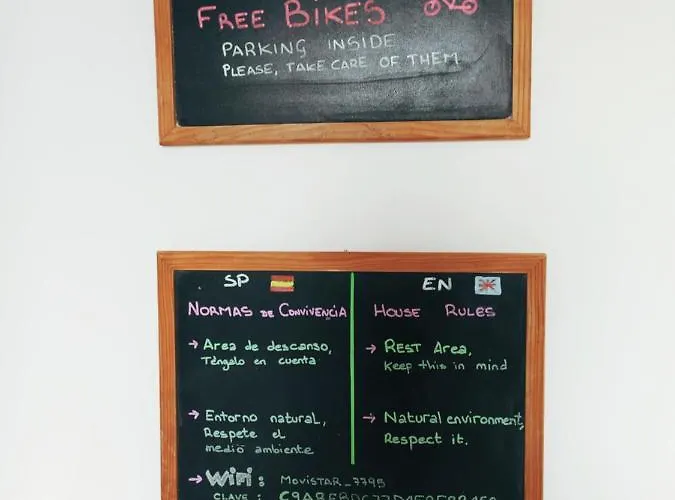 FREE BIKES
PARKING INSIDE
PLEASE, TAKE CARE OF THEM
SP
NORMAS DE CONVIVENCIA
→ Area de descanso,
Téngalo en cuenta
→ Entorno natural,
Respete el
medio ambiente
→ WiFi : MOVISTAR_7795
CLAVE :
EN
HOUSE RULES
→ REST Area,
Keep this in mind
→ Natural environment,
Respect it.